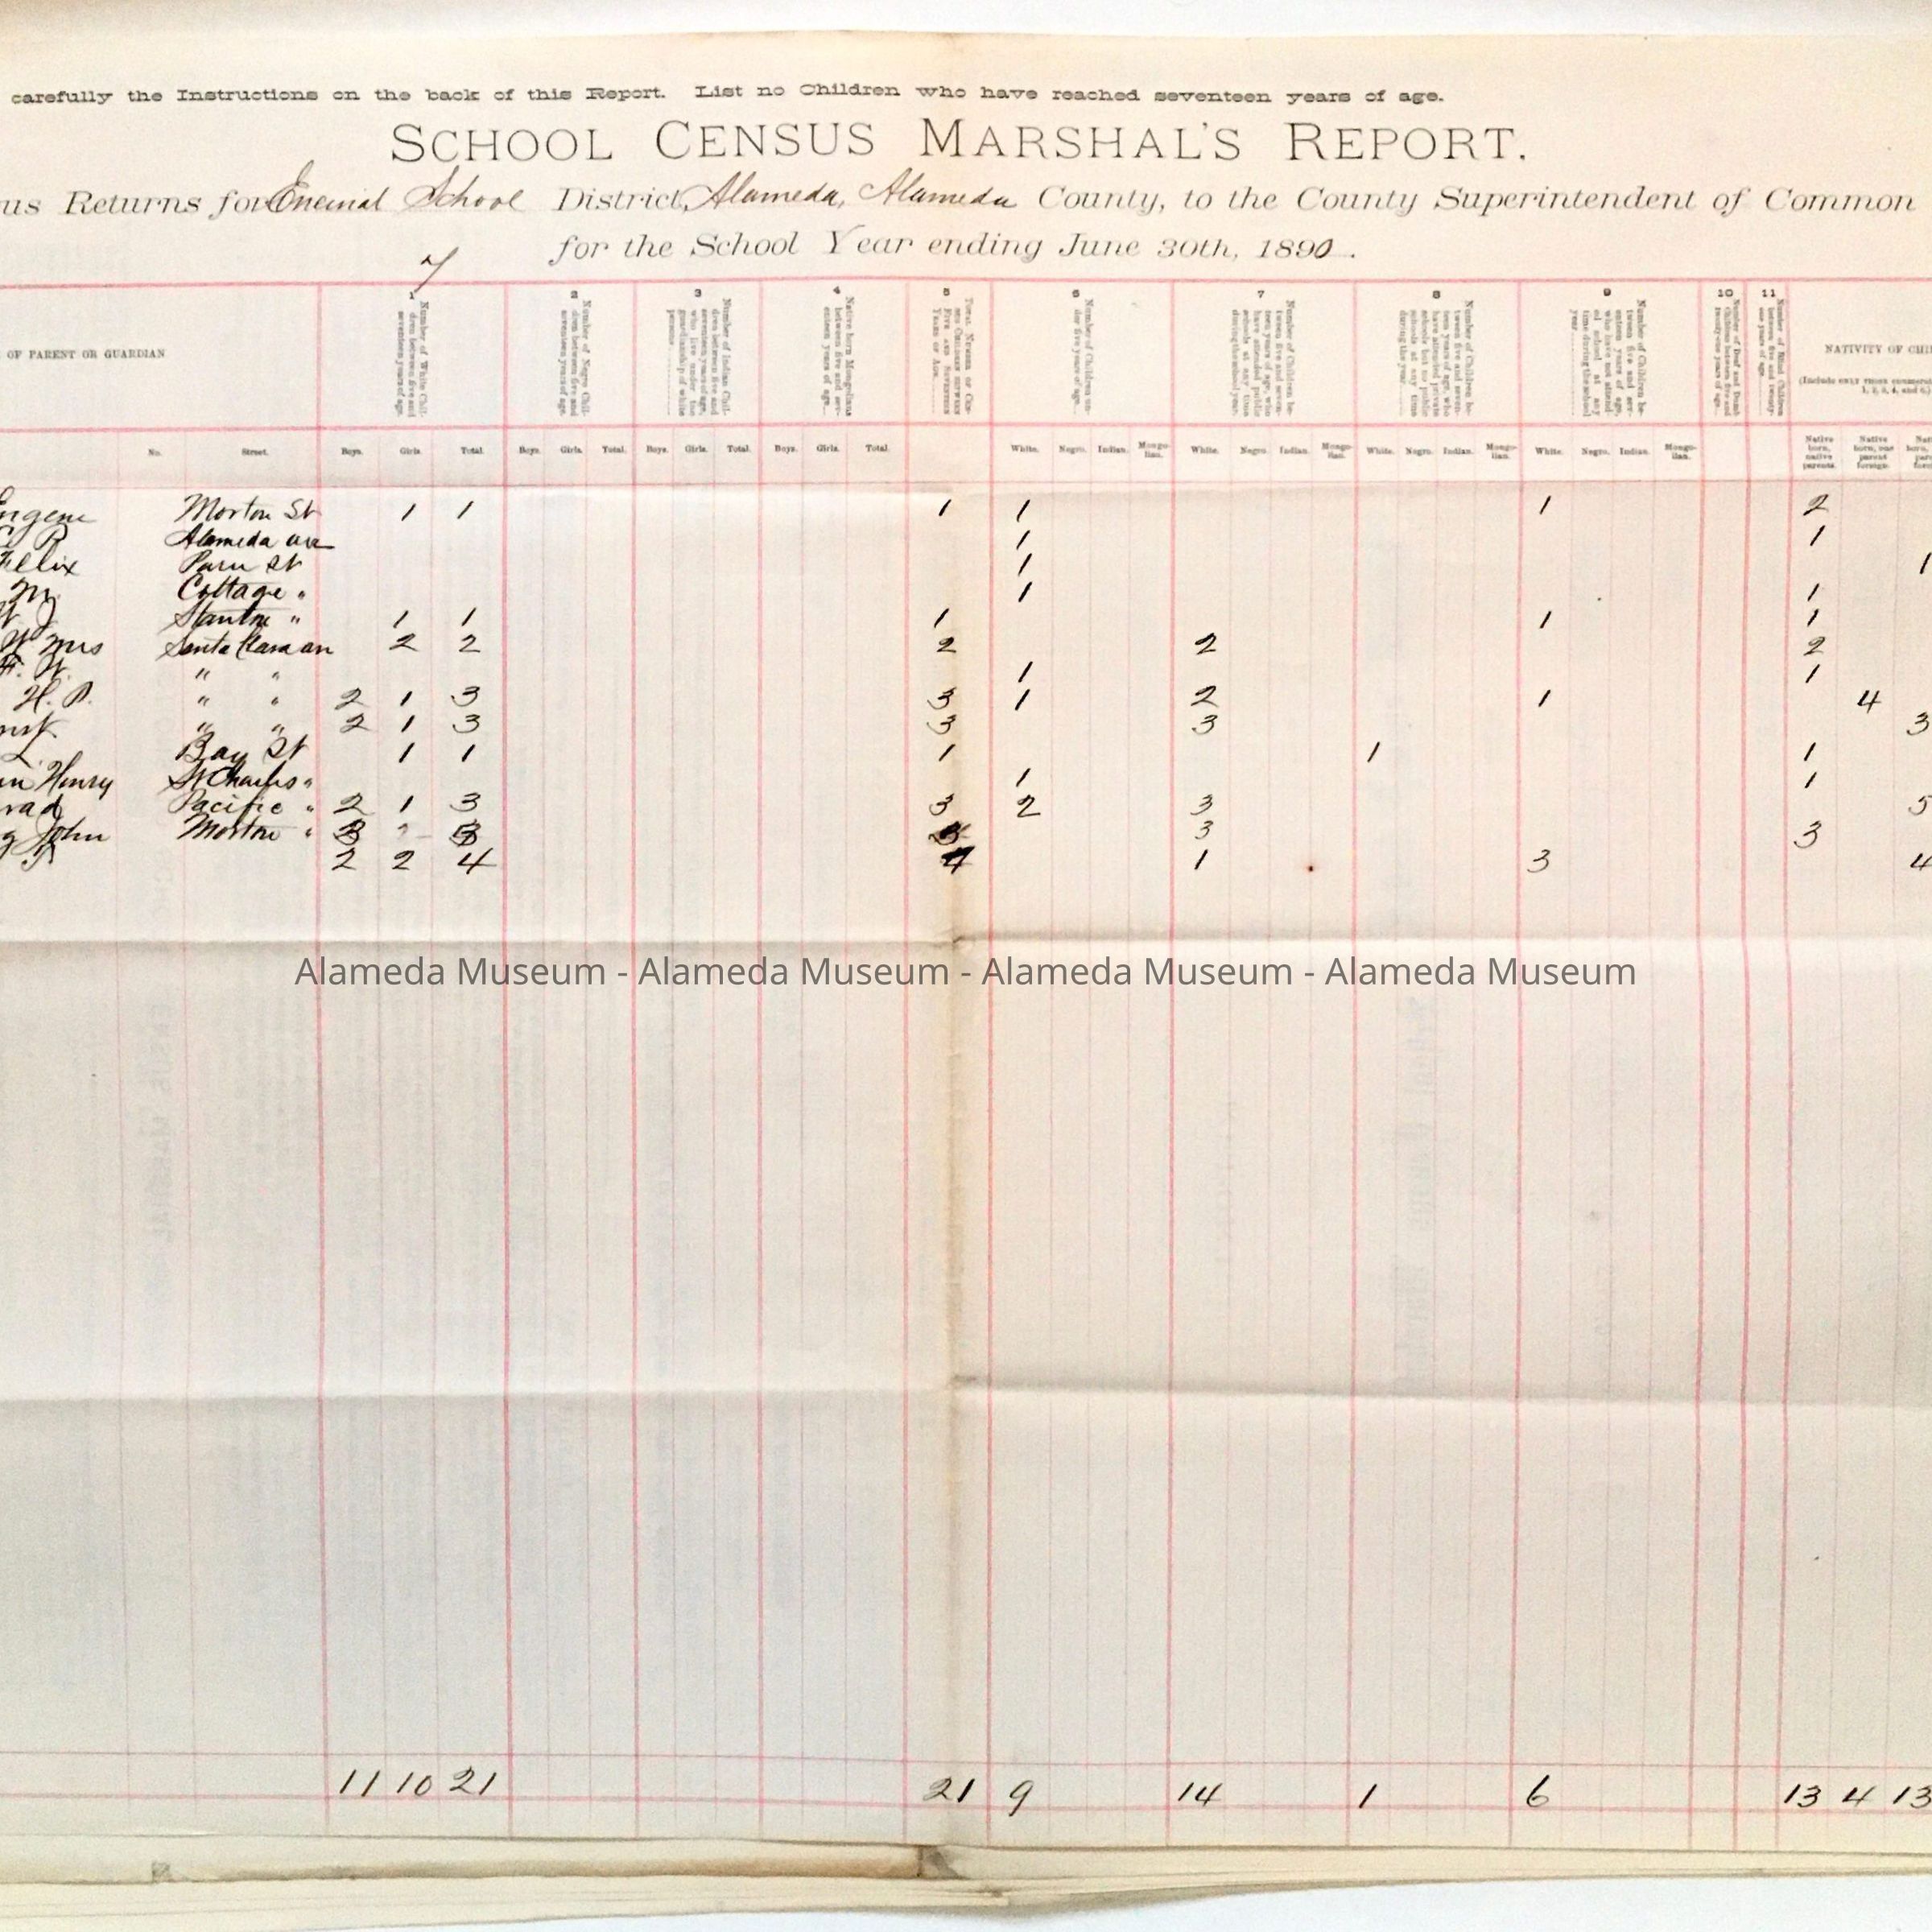 carefully the Instructions on the back of this Report. List no Children who have reached seventeen years of age.
SCHOOL CENSUS MARSHAL'S REPORT.
us Returns for Encinal School District, Alameda, Alameda County, to the County Superintendent of Common
for the School Year ending June 30th, 1890.
1 2 3 4 5 6 7 8 9 10 11
OF PARENT OR GUARDIAN
Number of White Children between five and seventeen years of age.
Number of Negro Children between five and seventeen years of age.
Number of Indian Children between five and seventeen years of age, who live under the guardianship of white persons
Native born Mongolians between five and seventeen years of age.
Total Number of Census Children between Five and Seventeen Years of Age
Number of Children under five years of age.
Number of Children between five and seventeen years of age, who have attended public schools at any time during the school year.
Number of Children between five and seventeen years of age, who have attended private schools but no public schools at any time during the year.
Number of Children between five and seventeen years of age, who have not attended school at any time during the school year
Number of Deaf and Dumb Children between five and twenty-one years of age.
Number of Blind Children between five and twenty-one years of age.
NATIVITY OF CHI
No. Street. Boys. Girls. Total. Boys. Girls. Total. Boys. Girls. Total. Boys. Girls. Total. White. Negro. Indian. Mongolian. White. Negro. Indian. Mongolian. White. Negro. Indian. Mongolian. White. Negro. Indian. Mongolian. Native born, native parents. Native born, one parent foreign.
Eugene Morton St 1 1 1 1 1 2
Alameda ave 1 1
Felix Paru St 1 1
M. Cottage " 1 1
Stanton " 1 1 1 1 1
Mrs Santa Clara av 2 2 2 2 2
" " 1 1
H. P. " " 2 1 3 3 1 2 1 4
" " 2 1 3 3 3 3
Bay St 1 1 1 1 1
Henry St Charles " 1 1
rad Pacific " 2 1 3 3 2 3 5
John Morton " 3 3 3 3 3
2 2 4 4 1 3 4
Alameda Museum - Alameda Museum - Alameda Museum - Alameda Museum
11 10 21 21 9 14 1 6 13 4 13